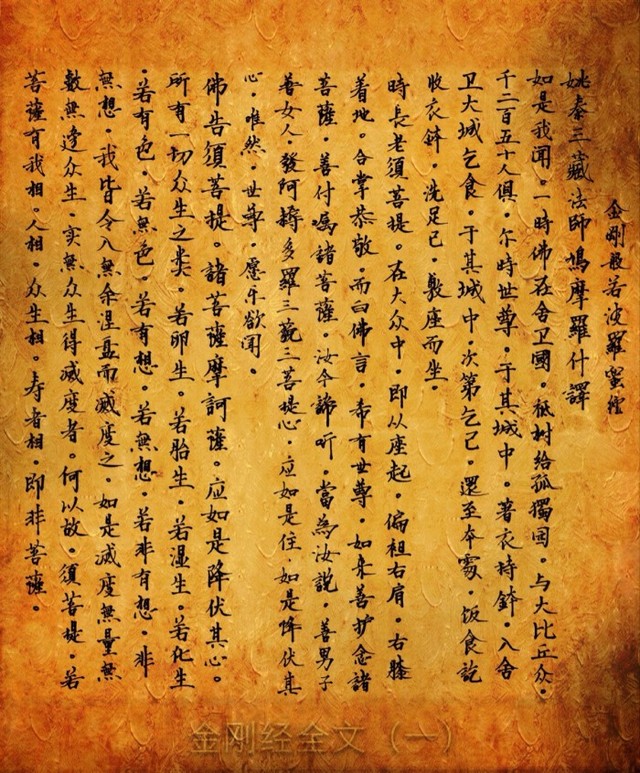 金剛般若波羅蜜經
姚秦三藏法師鳩摩羅什譯
如是我聞。一時佛在舍卫國。祗树给孤獨园。与大比丘众。
千二百五十人俱。尔時世尊。于其城中。著衣持鉢。入舍
卫大城乞食。于其城中。次第乞已。還至本處。饭食訖
收衣鉢。洗足已。敷座而坐。
時長老須菩提。在大众中。即从座起。偏袒右肩。右膝
着地。合掌恭敬。而白佛言。希有世尊。如来善护念諸
菩薩。善付嘱諸菩薩。汝今諦听。當為汝説。善男子
善女人。發阿耨多羅三藐三菩提心。应如是住。如是降伏其
心。唯然。世尊。愿乐欲聞。
佛告須菩提。諸菩薩摩訶薩。应如是降伏其心。
所有一切众生之类。若卵生。若胎生。若湿生。若化生
。若有色。若無色。若有想。若無想。若非有想。非
無想。我皆令入無余涅槃而滅度之。如是滅度無量無
數無邊众生。实無众生得滅度者。何以故。須菩提。若
菩薩有我相。人相。众生相。寿者相。即非菩薩。
金刚经全文（一）